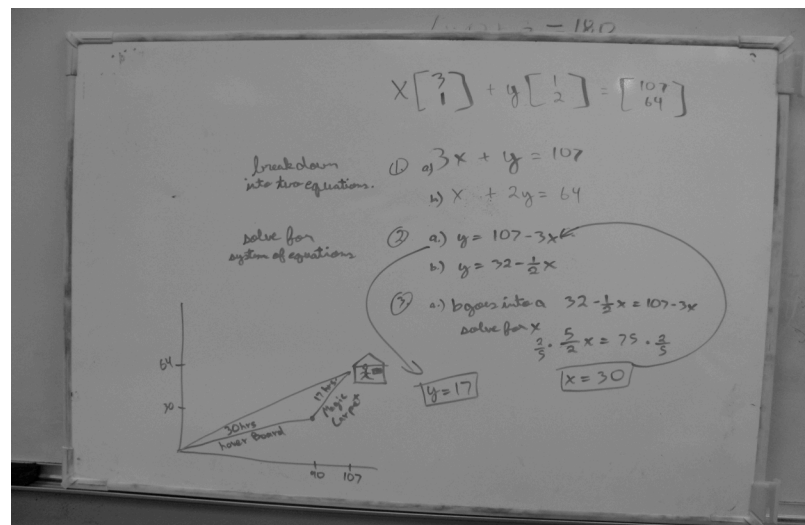 = 180
x [3 1] + y [1 2] = [107 64]
breakdown into two equations.
① a) 3x + y = 107
b) x + 2y = 64
solve for system of equations
② a.) y = 107 - 3x
b.) y = 32 - 1/2 x
③ a.) b goes into a 32 - 1/2 x = 107 - 3x
solve for x
2/5 · 5/2 x = 75 · 2/5
x = 30
y = 17
64
30
30hrs
hover Board
17 hrs
Magic Carpet
90 107